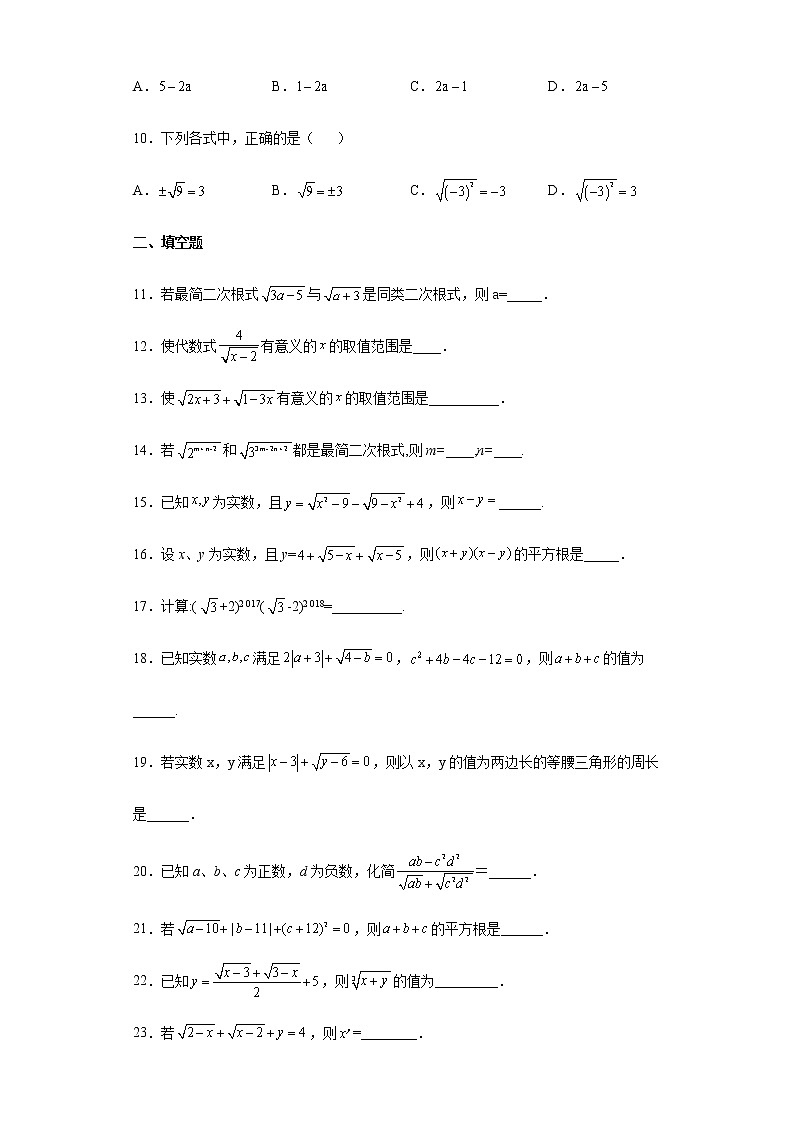 A．5－2a B．1－2a C．2a－1 D．2a－5
10．下列各式中，正确的是（　　）
A．±√9＝3 B．√9＝±3 C．√(−3)²＝−3 D．√(−3)²＝3
二、填空题
11．若最简二次根式√(3a−5)与√(a+3)是同类二次根式，则a=_____．
12．使代数式4/√(x−2)有意义的x的取值范围是____．
13．使√(2x+3)+√(1−3x)有意义的x的取值范围是__________．
14．若√(2^(m+n-2))和√(3^(3m-2n+2))都是最简二次根式,则m=____,n=____.
15．已知x,y为实数，且y=√(x²−9)−√(9−x²)+4，则x−y=______.
16．设x、y为实数，且y=4+√(5−x)+√(x−5)，则(x+y)(x−y)的平方根是_____．
17．计算:(√3+2)²⁰¹⁷(√3-2)²⁰¹⁸=__________.
18．已知实数a,b,c满足2|a+3|+√(4−b)=0，c²+4b−4c−12=0，则a+b+c的值为
______.
19．若实数x，y满足|x−3|+√(y−6)=0，则以x，y的值为两边长的等腰三角形的周长
是______．
20．已知a、b、c为正数，d为负数，化简(ab−c²d²)/(√(ab)+√(c²d²))＝______．
21．若√(a−10)+|b−11|+(c+12)²=0，则a+b+c的平方根是______．
22．已知y=(√(x−3)+√(3−x))/2+5，则∛(x+y)的值为_________．
23．若√(2−x)+√(x−2)+y=4，则xʸ=________．